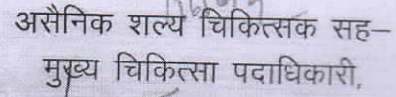 असैनिक शल्य चिकित्सक सह–
मुख्य चिकित्सा पदाधिकारी,